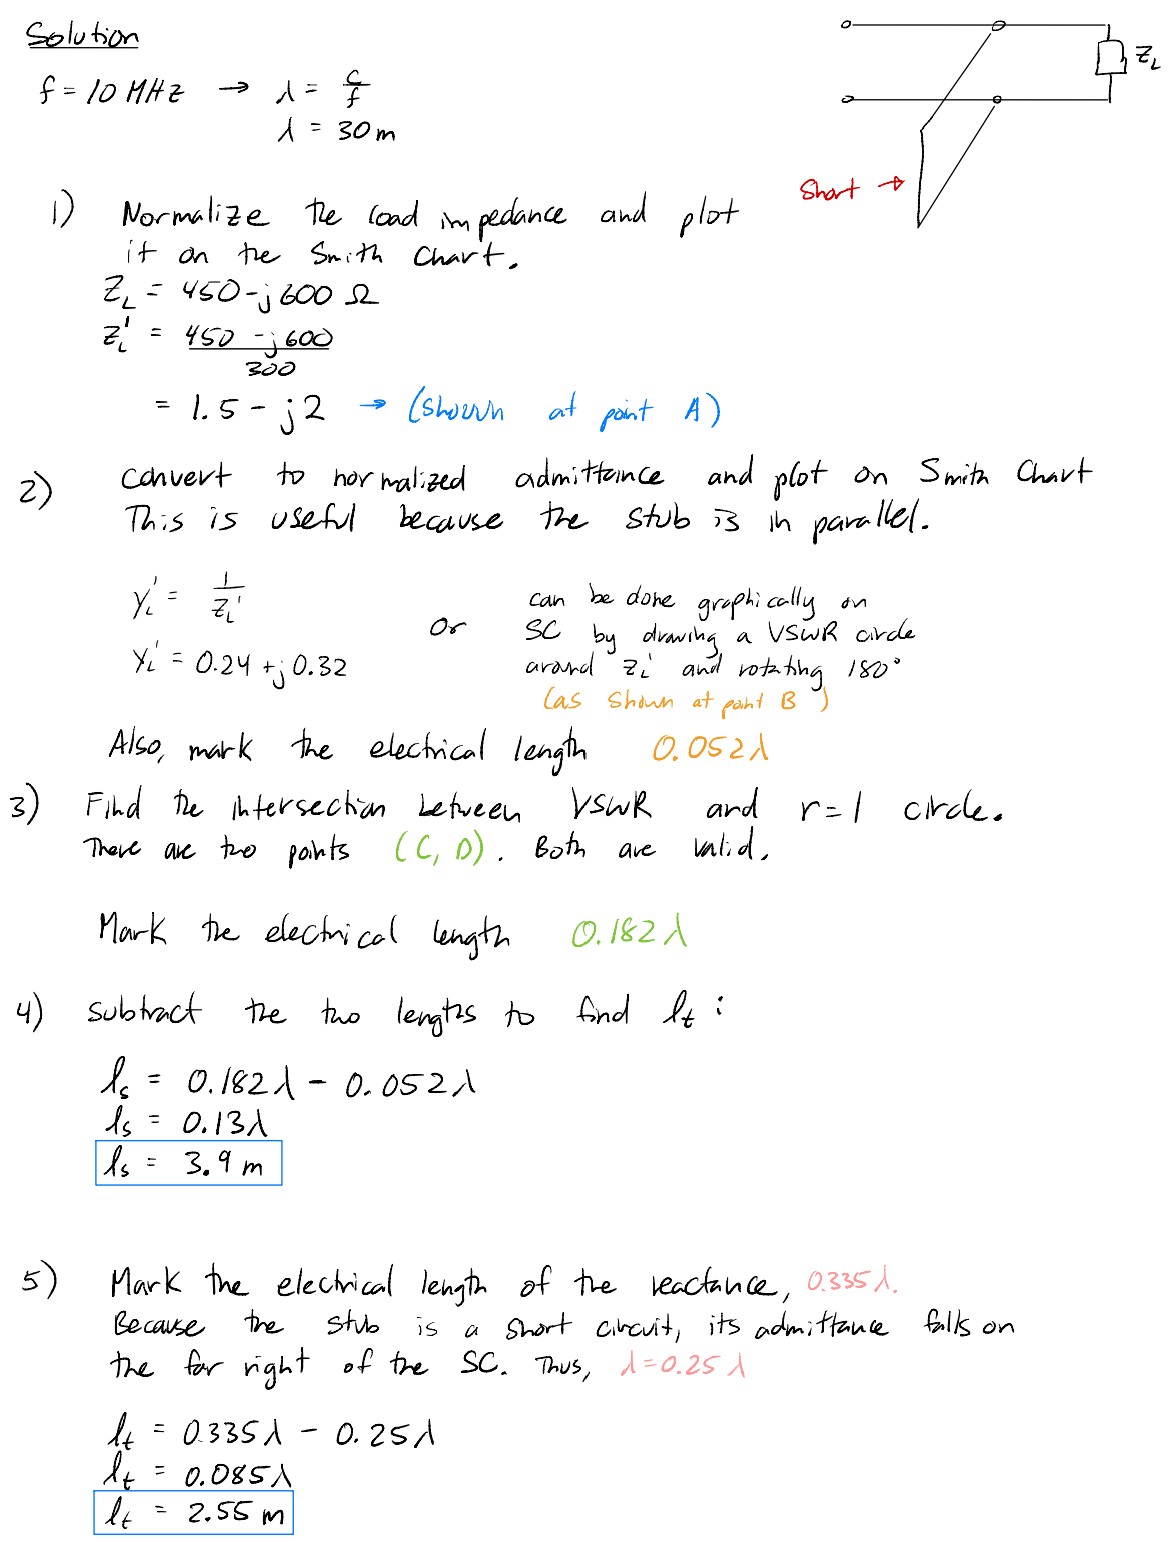 Solution
f = 10 MHz → λ = c/f
λ = 30m
Z_L
Short →
1) Normalize the load impedance and plot
it on the Smith Chart.
Z_L = 450 - j600 Ω
Z_L' = 450 - j600 / 300
= 1.5 - j2 → (shown at point A)
2) Convert to normalized admittance and plot on Smith Chart
This is useful because the stub is in parallel.
Y_L' = 1/Z_L'
Y_L' = 0.24 + j0.32
or
can be done graphically on
SC by drawing a VSWR circle
around Z_L' and rotating 180°
(as shown at point B)
Also, mark the electrical length 0.052λ
3) Find the intersection between VSWR and r=1 circle.
There are two points (C, D). Both are valid.
Mark the electrical length 0.182λ
4) Subtract the two lengths to find l_t:
l_s = 0.182λ - 0.052λ
l_s = 0.13λ
l_s = 3.9 m
5) Mark the electrical length of the reactance, 0.335λ.
Because the stub is a short circuit, its admittance falls on
the far right of the SC. Thus, λ=0.25λ
l_t = 0.335λ - 0.25λ
l_t = 0.085λ
l_t = 2.55 m